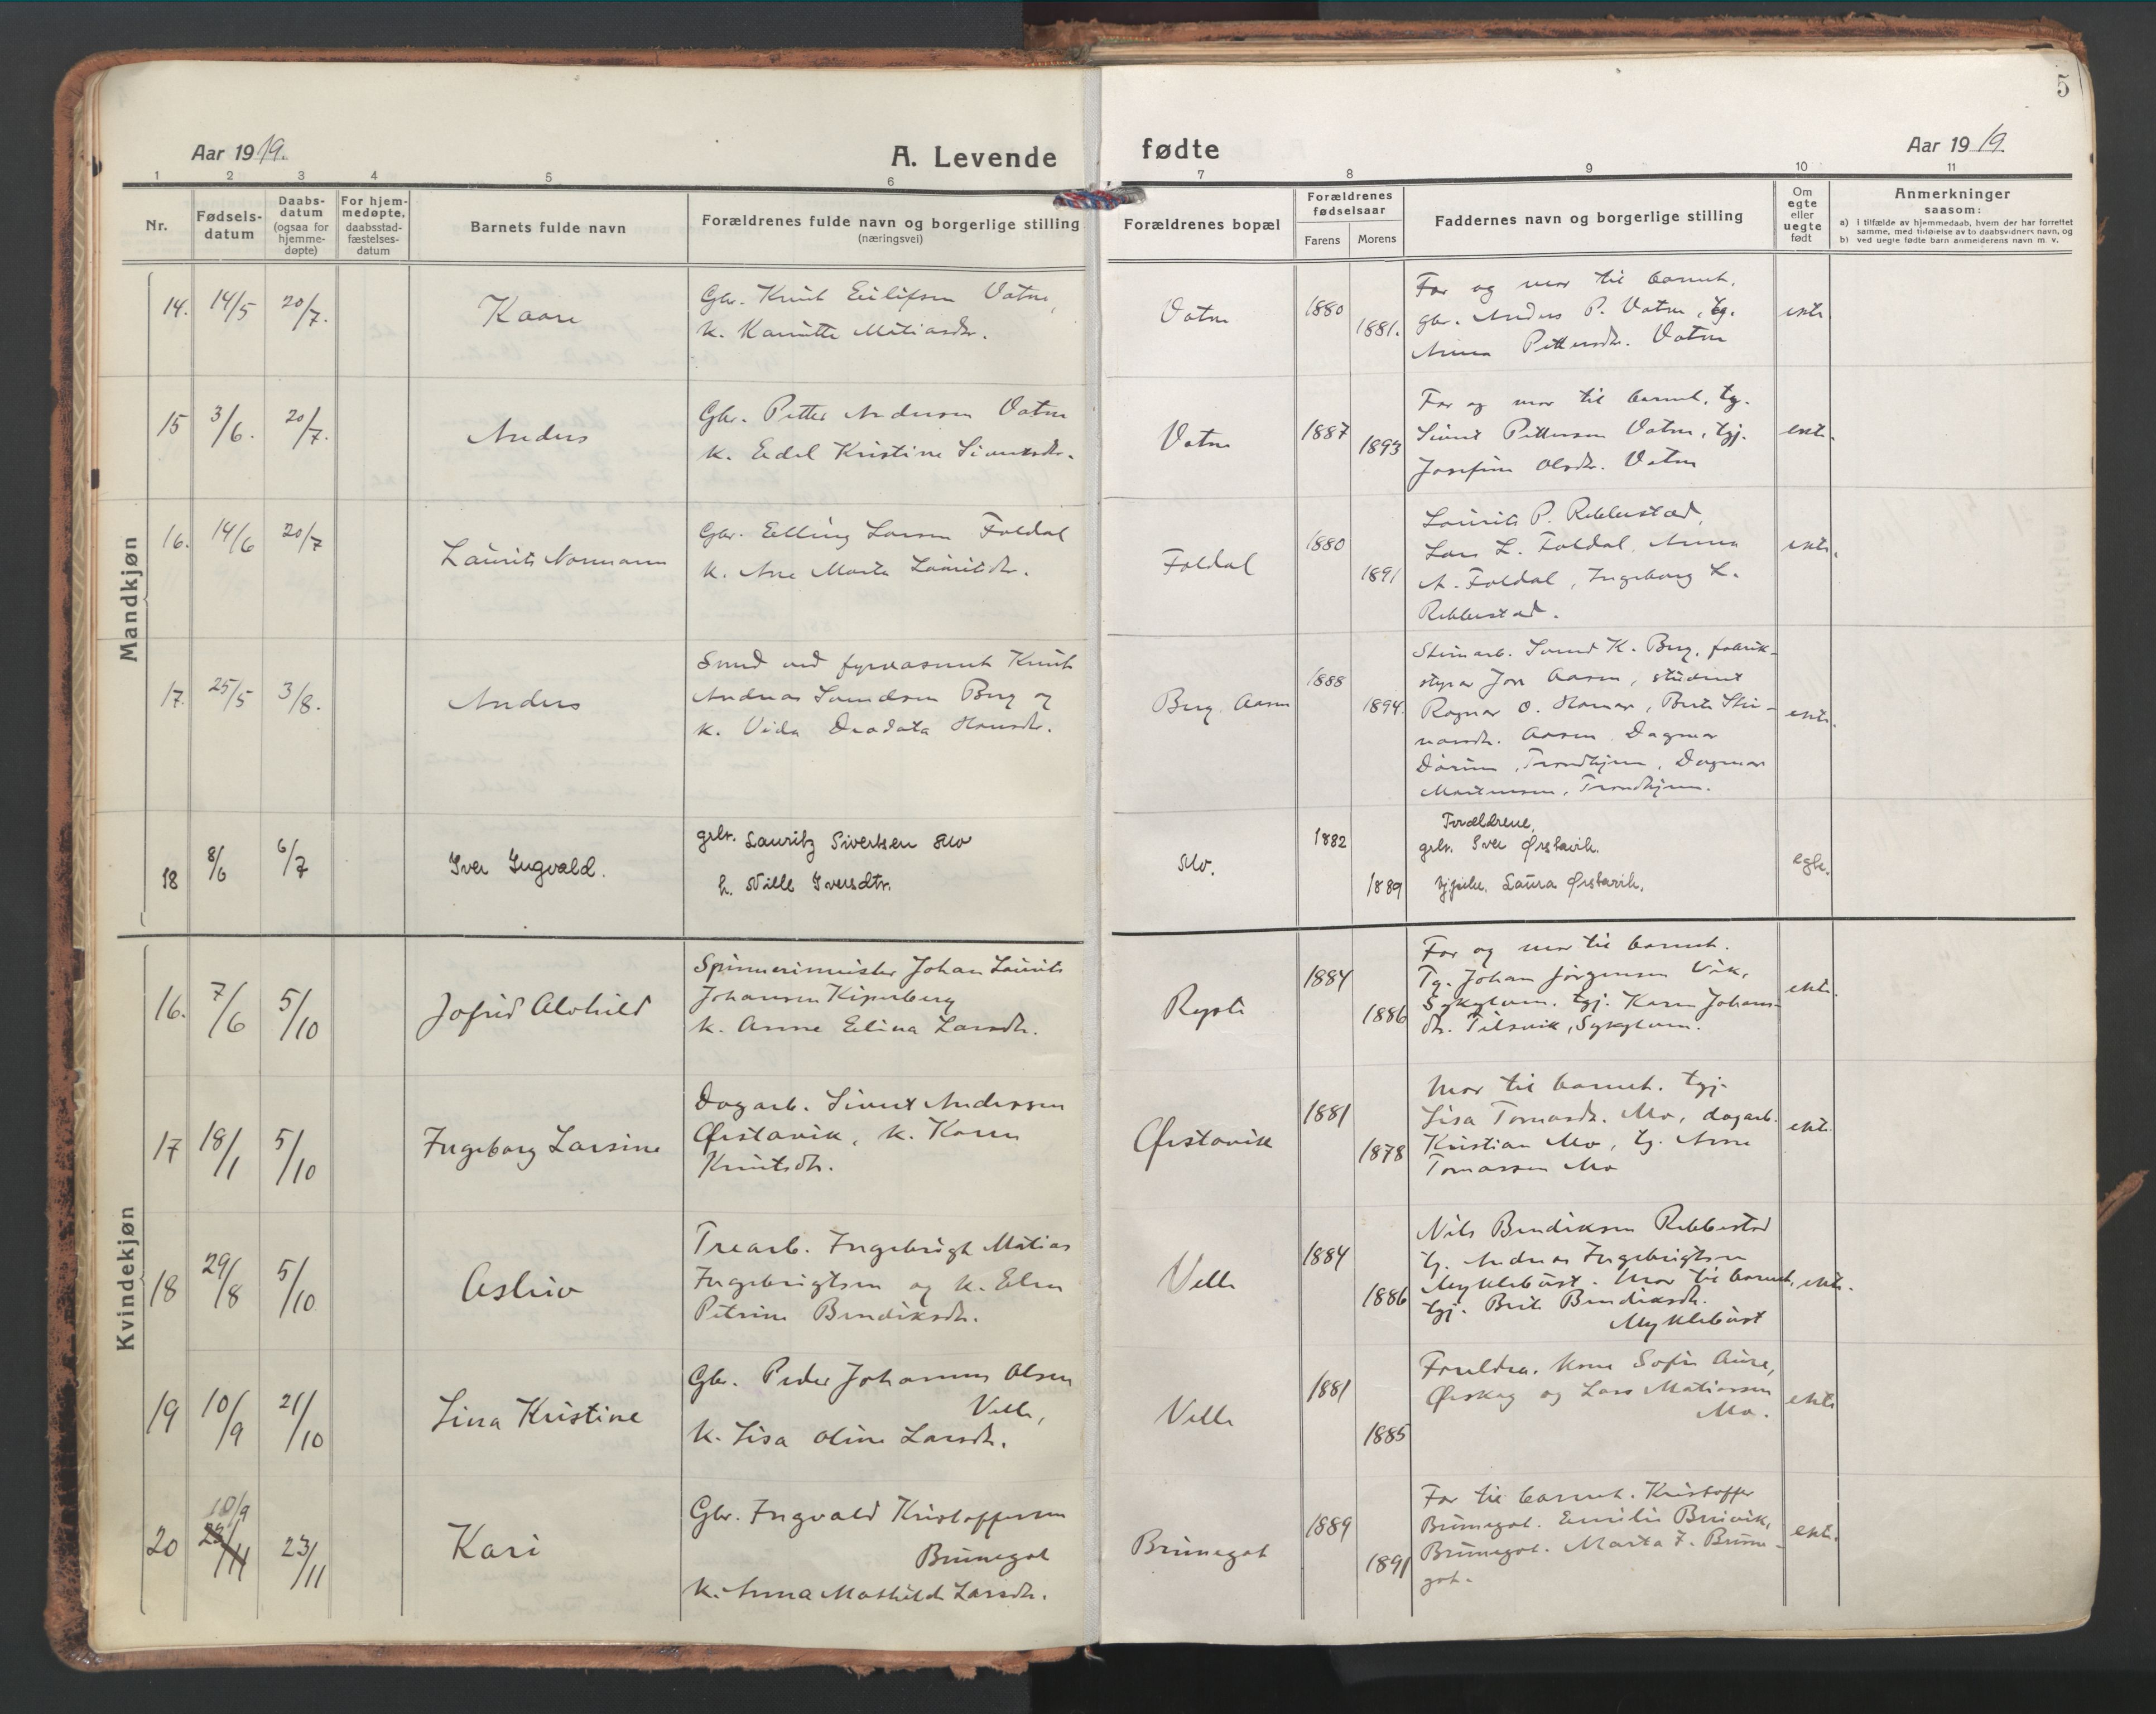 5
Aar 1919.
A. Levende fødte
Aar 1919.
1 2 3 4 5 6 7 8 9 10 11
Nr.
Fødsels-
datum
Daabs-
datum
(ogsaa for
hjemme-
døpte)
For hjem-
medøpte,
daabsstad-
fæstelses-
datum
Barnets fulde navn
Forældrenes fulde navn og borgerlige stilling
(næringsvei)
Forældrenes bopæl
Forældrenes
fødselsaar
Farens Morens
Faddernes navn og borgerlige stilling
Om
egte
eller
uegte
født
Anmerkninger
saasom:
a) i tilfælde av hjemmedaab, hvem der har forrettet
samme, med tilføielse av to daabsvidners navn, og
b) ved uegte fødte barn anmelderens navn m. v.
Mandkjøn
14. 14/5 20/7. Kaare
Gbr. Knut Eilifsen Vatne,
k. Kamitte Matiasdr.
Vatne 1880 1881.
Far og mor til barnet,
gbr. Anders P. Vatne, tg.
Anna Pettersdr. Vatne
ekte.
15 3/6. 20/7. Anders
Gbr. Petter Andersen Vatne
k. Edel Kristine Sivertsdr.
Vatne 1887 1893
Far og mor til barnet, tg.
Sivert Pettersen Vatne, tgj.
Josefine Olsdr. Vatne
ekte.
16. 14/6 20/7 Laurits Normann
Gbr. Elling Larsen Foldal
k. Ane Marta Lauritsdr.
Foldal 1880 1891
Laurits P. Rebbestad,
Lars L. Foldal, Anna
A. Foldal, Ingeborg L.
Rebbestad.
ekte.
17. 25/5 3/8. Anders
Smed ved fyrvæsenet Knut
Andreas Svendsen Berg og
k. Vida Deodata Hansdr.
Berg, Aasen 1888 1894.
Stenarb. Svend K. Berg, fabrik-
styrer Jon Aasen, student
Ragnar O. Hamar, Berte Stei-
narsdr. Aasen, Dagmar
Trondhjem, Dagmar
Martinsen, Trondhjem.
ekte.
18 8/6 6/7 Iver Ingvald.
grbr. Lauritz Sivertsen Mo
h. Nille Iversdtr.
Mo. 1882 1889
Forældrene,
grbr. Iver Ørstavik.
Laura Ørstavik.
egte.
Kvindekjøn
16. 7/6 5/10 Jofrid Alvhild
Spinnerimester Johan Laurits
Johansen Kiperberg
k. Anne Elina Larsdr.
Røyste 1884 1886
Far og mor til barnet.
Tg. Johan Jørgensen Vik,
Sykylven. tgj. Karen Johans-
dr. Tilsvik, Sykylven.
ekte.
17 18/1 5/10 Ingeborg Larsine
Dagarb. Sivert Andersen
Ørstavik, k. Karen
Knutsdr.
Ørstavik 1881 1878
Mor til barnet. tgj.
Lisa Tomasdr. Mo, dagarb.
Kristian Mo, tg. Arne
Tomassen Mo
ekte
18 29/8 5/10 Aslaug
Trearb. Ingebrigt Matias
Ingebrigtsen og k. Elen
Petrine Bendiksdr.
Velle 1884 1886
Nils Bendiksen Rebbestad
tg. Andreas Ingebrigtsen
Myklebust. Mor til barnet,
tgj. Brit Bendiksdr.
Myklebust
ekte.
19 10/9 21/10 Lina Kristine
Gbr. Peder Johannes Olsen
Velle,
k. Lisa Oline Larsdr.
Velle 1881 1885
Foreldra, kone Sofie Aure,
Ørskog og Lars Matiassen
Mo.
ekte
20 10/9 23/11 23/11 Kari
Gbr. Ingvald Kristoffersen
Brunegot
k. Anna Mathilde Larsdr.
Brunegot 1889 1891
Far til barnet. Kristoffer
Brunegot. Emilie Breivik,
Brunegot. Marta I. Brune-
got.
ekte.